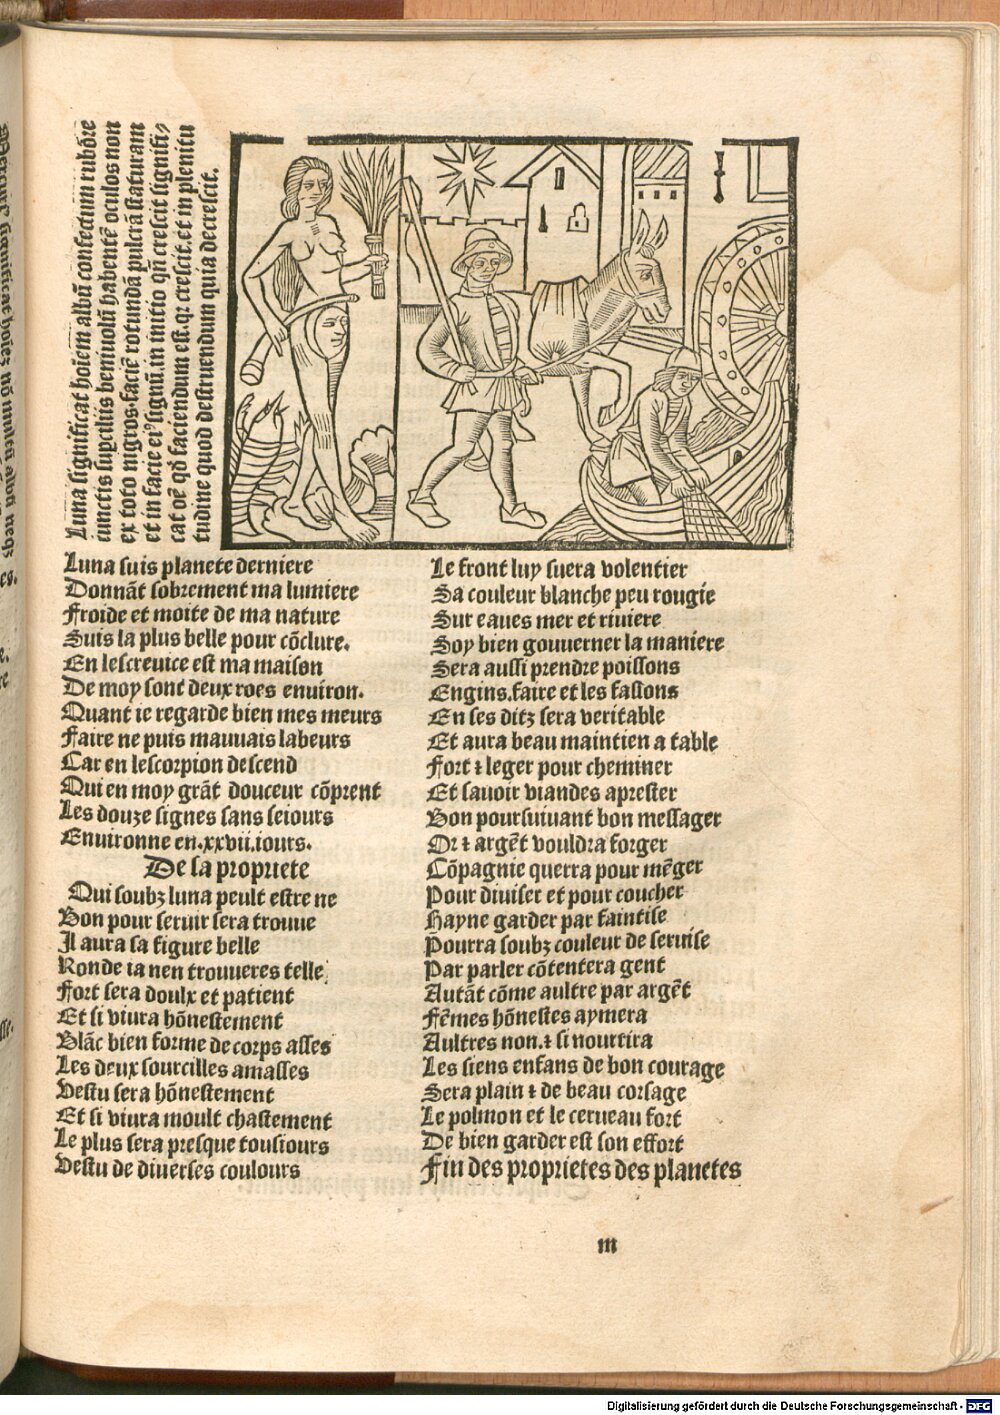 Luna significat hoiem albū confectum rubore
iunctis supciliis beniuolū habentē oculos non
ex toto nigros. faciē rotundā pulcrā staturam
et in facie eiꝰ signū. in initio qn̄ crescit signifi⸗
cat oē qd faciendum est. qr crescit. et in plenitu
tudine quod destruendum quia decrescit.
Luna suis planete derniere
Donnāt sobrement ma lumiere
Froide et moite de ma nature
Suis la plus belle pour cōclure.
En lescreuice est ma maison
De moy sont deux roes environ.
Quant ie regarde bien mes meurs
Faire ne puis mauuais labeurs
Car en lescorpion descend
Qui en moy grāt douceur cōprent
Les douze signes sans seiours
Environne en .xxvii. iours.
De la propriete
Qui soubz luna peult estre ne
Bon pour seruir sera trouue
Il aura sa figure belle
Ronde ia nen trouueres telle
Fort sera doulx et patient
Et si viura hōnestement
Blāc bien forme de corps asses
Les deux sourcilles amasses
Vestu sera hōnestement
Et si viura moult chastement
Le plus sera presque tousiours
Vestu de diuerses coulours
Le front luy suera volentier
Sa couleur blanche peu rougie
Sur eaues mer et riuiere
Soy bien gouuerner la maniere
Sera aussi prendre poissons
Engins. faire et les fassons
En ses ditz sera veritable
Et aura beau maintien a table
Fort ⁊ leger pour cheminer
Et sauoir viandes aprester
Bon poursuiuant bon messager
Or ⁊ argēt vouldra forger
Cōpagnie querra pour mēger
Pour diuiser et pour coucher
Hayne garder par faintise
Pourra soubz couleur de seruise
Par parler cōtentera gent
Autāt cōme aultre par argēt
Fēmes hōnestes aymera
Aultres non. ⁊ si nourrira
Les siens enfans de bon courage
Sera plain ⁊ de beau corsage
Le polmon et le cerueau fort
De bien garder est son effort
Fin des proprietes des planetes
m
Digitalisierung gefördert durch die Deutsche Forschungsgemeinschaft - DFG